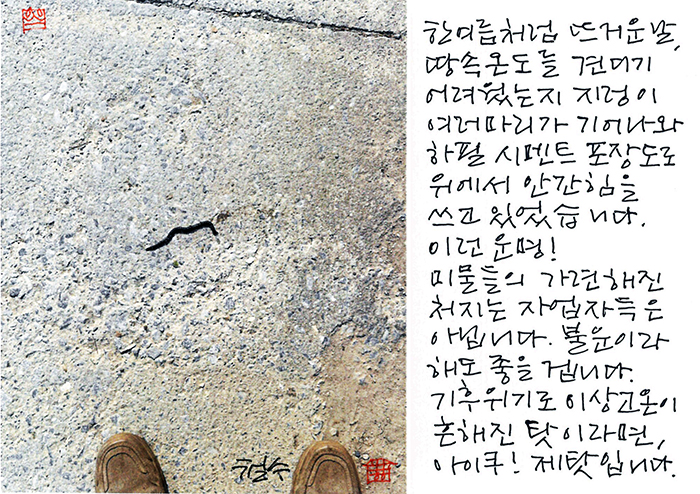 한여름처럼 뜨거운 날,
땅속온도를 견디기
어려웠는지 지렁이
여러마리가 기어나와
하필 시멘트 포장도로
위에서 안간힘을
쓰고 있었습니다.
이런 운명!
미물들의 가련해진
처지는 자업자득은
아닙니다. 불운이라
해도 좋을 겁니다.
기후위기로 이상고온이
흔해진 탓이라면,
아이쿠! 제탓입니다.